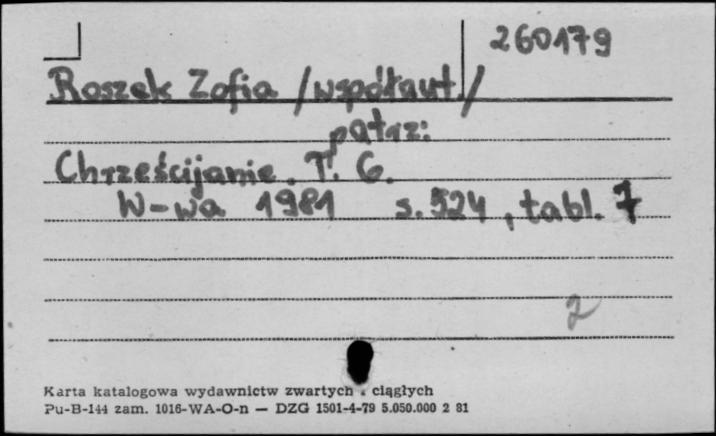 260179
Roszek Zofia /współaut./
patrz:
Chrześcijanie. T. 6.
W-wa 1981 s. 524, tabl. 7
2
Karta katalogowa wydawnictw zwartych i ciągłych
Pu-B-144 zam. 1016-WA-O-n — DZG 1501-4-79 5.050.000 2 81